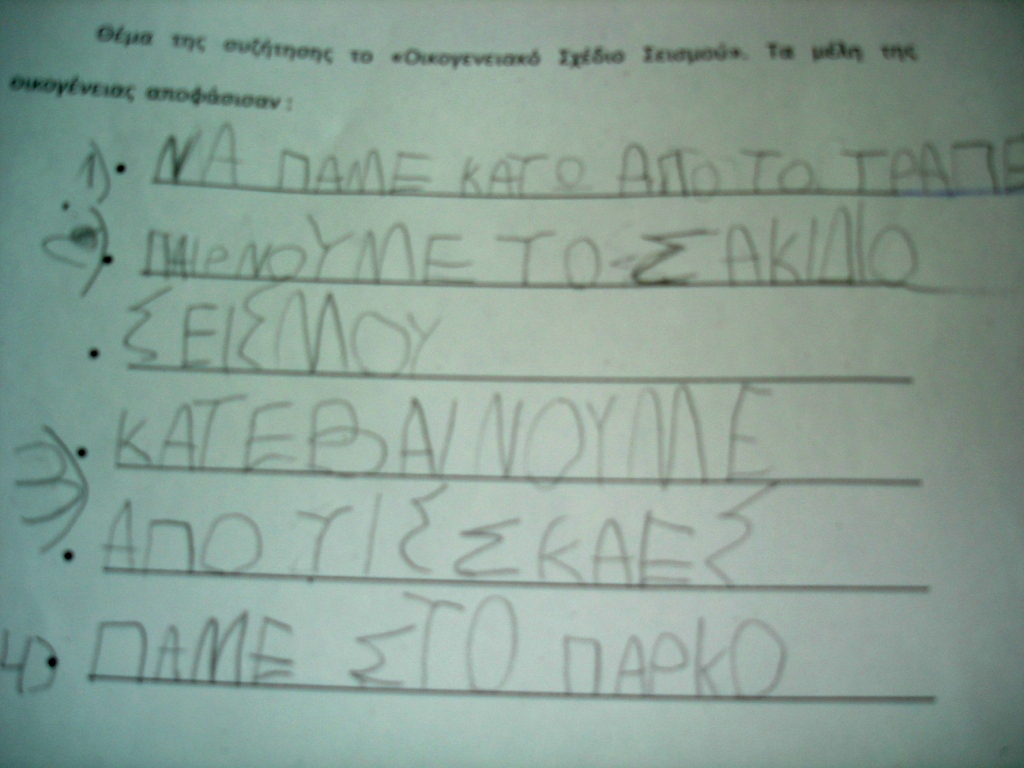 Θέμα της συζήτησης το «Οικογενειακό Σχέδιο Σεισμού». Τα μέλη της
οικογένειας αποφάσισαν :
1) • ΝΑ ΠΑΜΕ ΚΑΤΟ ΑΠΟ ΤΟ ΤΡΑΠΕ
2) • ΠΑΙΡΝΟΥΜΕ ΤΟ ΣΑΚΙΔΙΟ
• ΣΕΙΣΜΟΥ
3) • ΚΑΤΕΒΑΙΝΟΥΜΕ
• ΑΠΟ ΤΙΣ ΣΚΑΕΣ
4) • ΠΑΜΕ ΣΤΟ ΠΑΡΚΟ